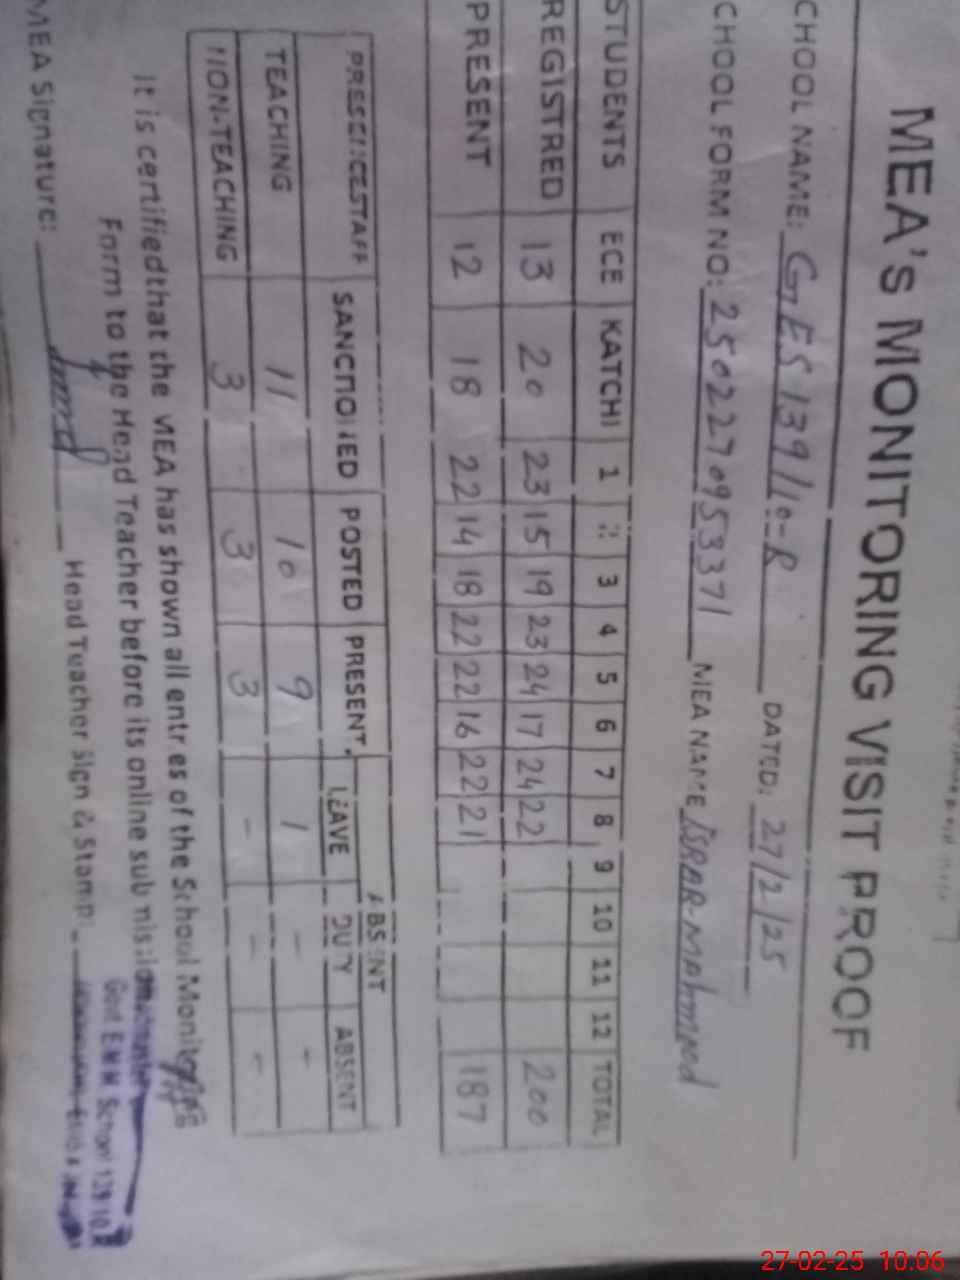 MEA's MONITORING VISIT PROOF
CHOOL NAME: GES 139/10-R DATED: 27/2/25
CHOOL FORM NO: 2502270953371 MEA NAME ISRAR-MAhmood
STUDENTS ECE KATCHI 1 :: 3 4 5 6 7 8 9 10 11 12 TOTAL
REGISTRED 13 20 23 15 19 23 24 17 24 22 200
PRESENT 12 18 22 14 18 22 22 16 22 21 187
PRESENCESTAFF SANCTIONED POSTED PRESENT ABSENT
LEAVE DUTY ABSENT
TEACHING 11 10 9 1 - -
NON-TEACHING 3 3 3 - - -
It is certified that the MEA has shown all entres of the School Monitoring
Form to the Head Teacher before its online submission
MEA Signature: Head Teacher Sign & Stamp:
Headmaster
Govt E M M School 139 10 R
27-02-25 10:06